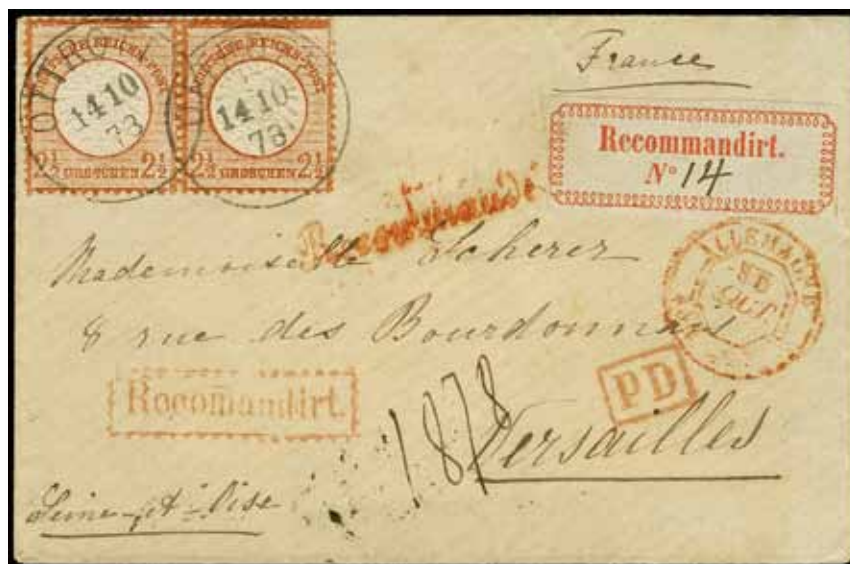 France
DEUTSCHE REICHS-POST
14 10
73
2½ GROSCHEN 2½
DEUTSCHE REICHS-POST
14 10
73
2½ GROSCHEN 2½
Recommandirt.
N° 14
Mademoiselle Scherer
8 rue des Bourdonnais
ALLEMAGNE
OCT
Recomandirt.
PD
1878
Versailles
Seine-et-Oise